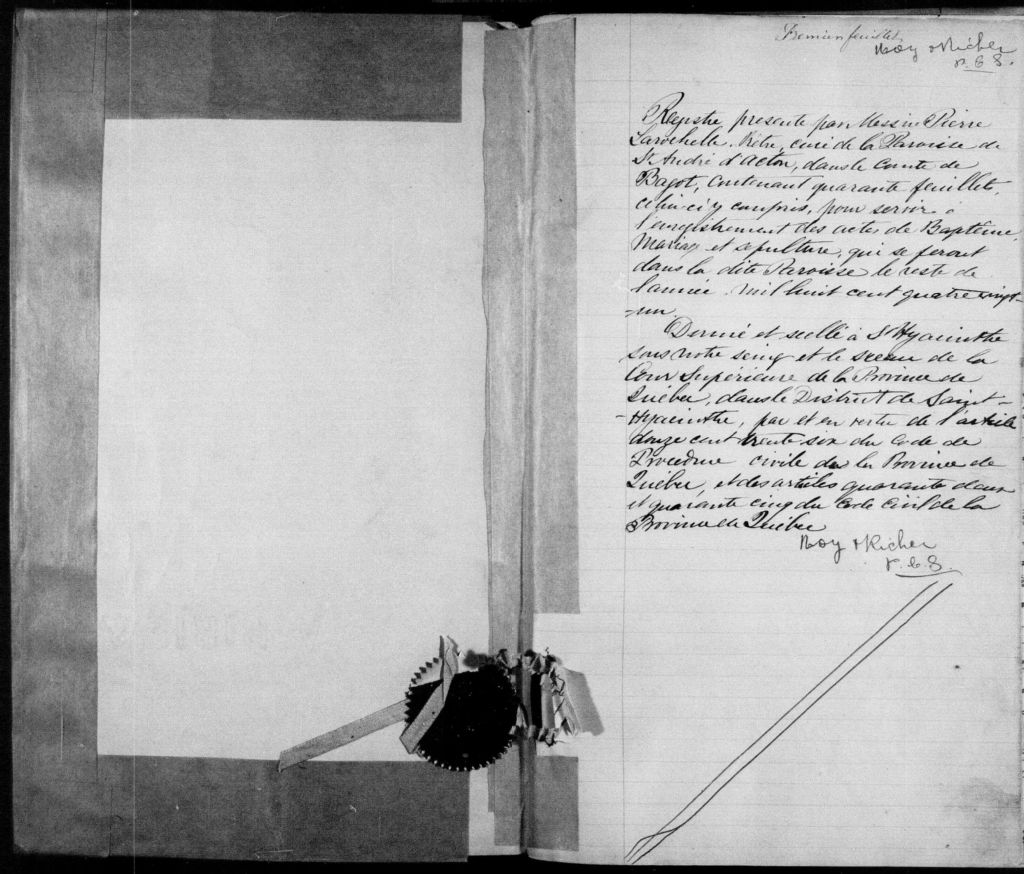 Premier feuillet
Roy & Richer
P.C.S.
Registre présenté par Messire Pierre
Larochelle, Prêtre, curé de la Paroisse de
St André d'Acton, dans le Comté de
Bagot, contenant quarante feuillets,
celui-ci y compris, pour servir à
l'enregistrement des actes de Baptême,
Mariage et sépulture, qui se feront
dans la dite Paroisse le reste de
l'année mil huit cent quatre vingt-
-un.
Donné et scellé à St Hyacinthe
sous notre seing et le sceau de la
Cour Supérieure de la Province de
Québec, dans le District de Saint-
-Hyacinthe, par et en vertu de l'article
douze cent trente six du Code de
Procédure civile de la Province de
Québec, et des articles quarante deux
et quarante cinq du Code Civil de la
Province de Québec
Roy & Richer
P.C.S.